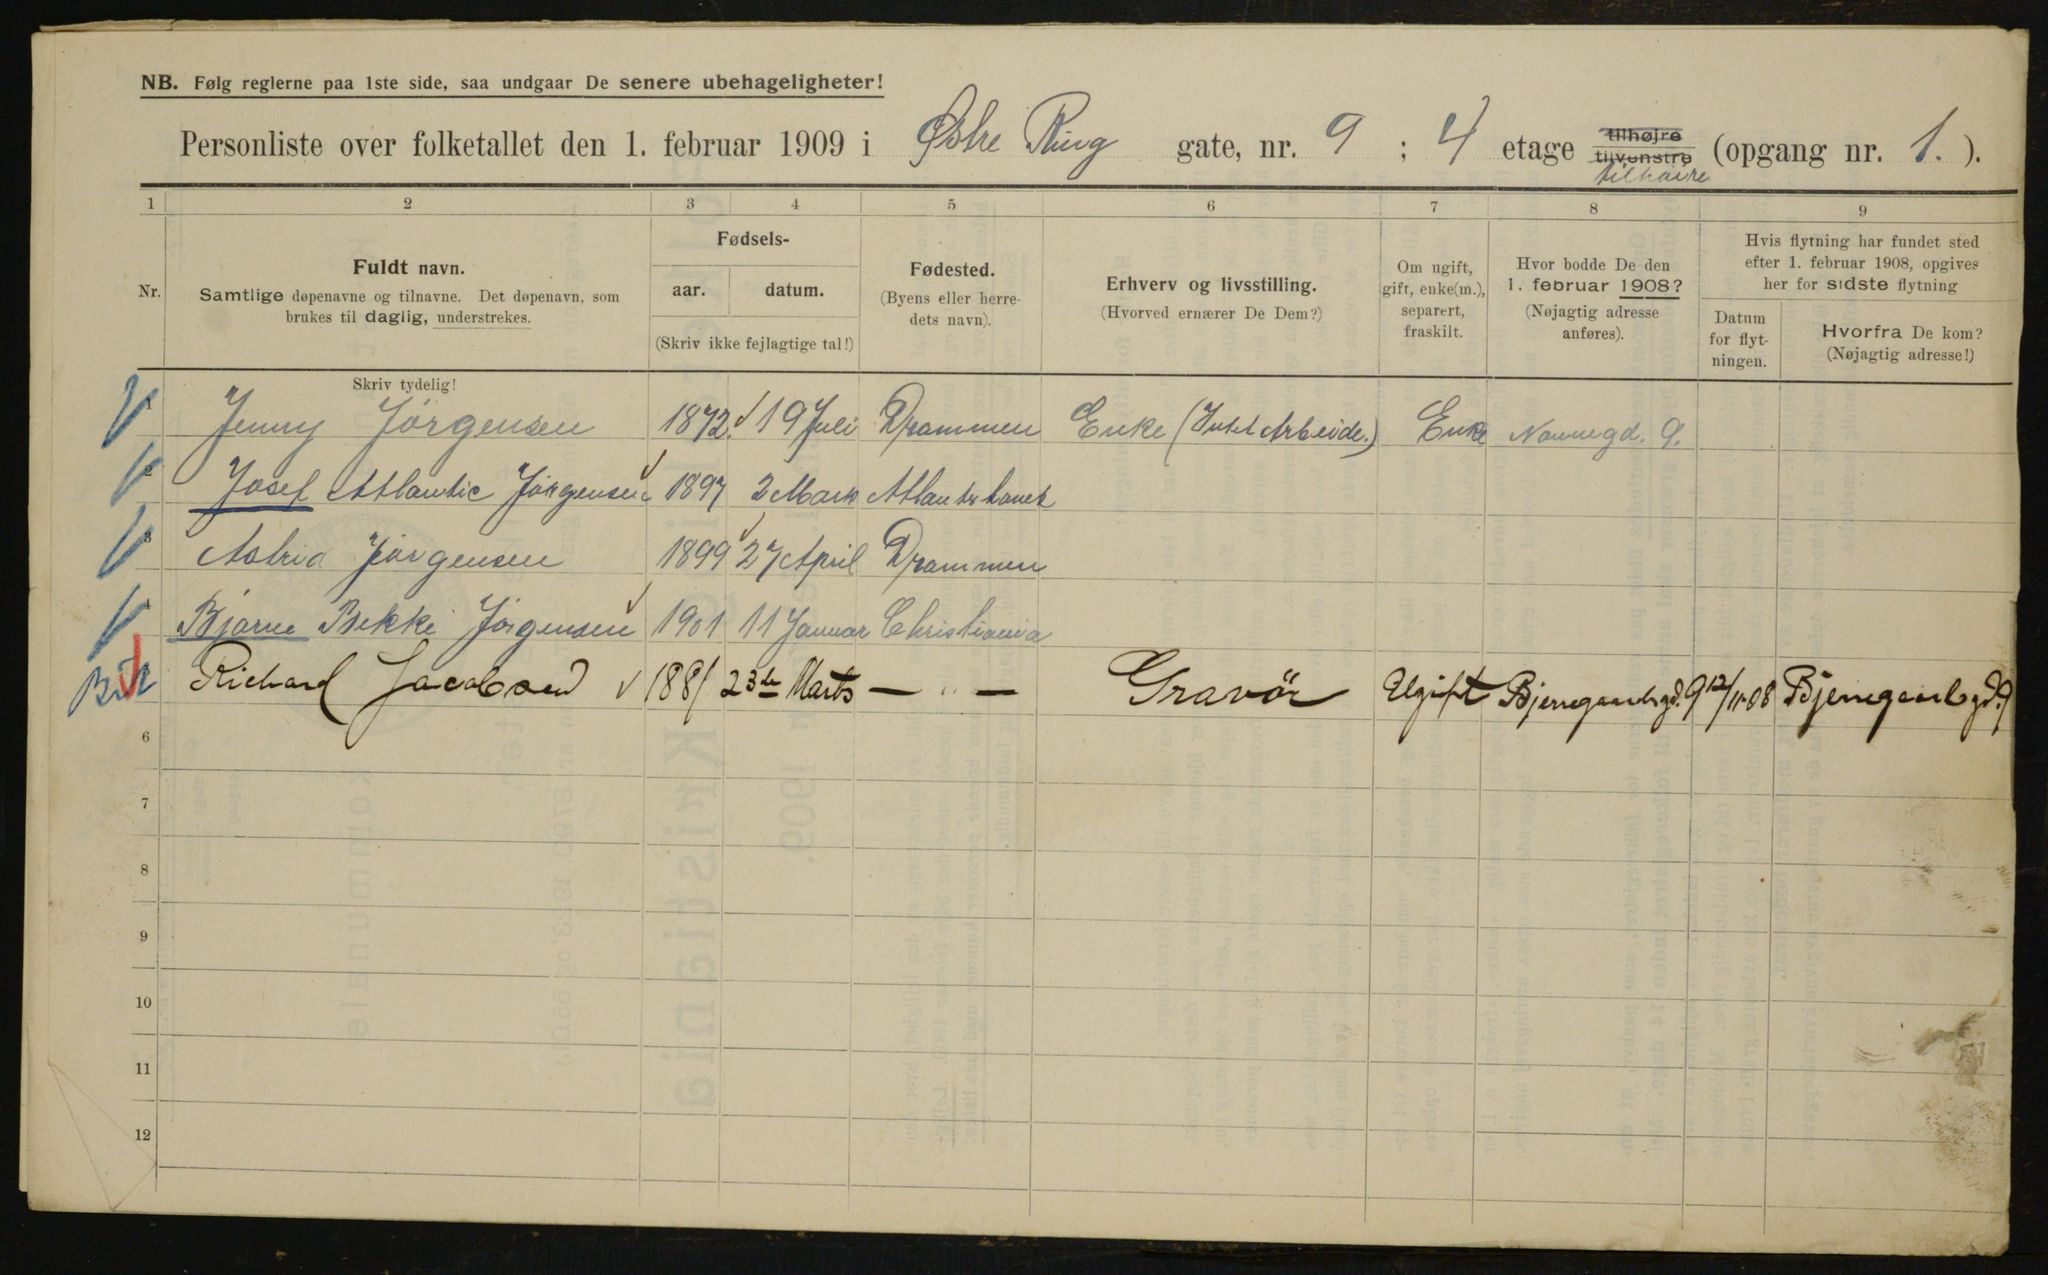 NB. Følg reglerne paa 1ste side, saa undgaar De senere ubehageligheter!
Personliste over folketallet den 1. februar 1909 i Østre Ring gate, nr. 9 ; 4 etage tilhøjre tilvenstre (opgang nr. 1. ).
tilhøire
1 2 3 4 5 6 7 8 9
Nr.
Fuldt navn.
Samtlige døpenavne og tilnavne. Det døpenavn, som
brukes til daglig, understrekes.
Skriv tydelig!
Fødsels-
aar. datum.
(Skriv ikke fejlagtige tal!)
Fødested.
(Byens eller herre-
dets navn).
Erhverv og livsstilling.
(Hvorved ernærer De Dem?)
Om ugift,
gift, enke(m.),
separert,
fraskilt.
Hvor bodde De den
1. februar 1908?
(Nøjagtig adresse
anføres).
Hvis flytning har fundet sted
efter 1. februar 1908, opgives
her for sidste flytning
Datum
for flyt-
ningen.
Hvorfra De kom?
(Nøjagtig adresse!)
Jenny Jörgensen 1872. 19 Juli Drammen Enke (Intet Arbeide.) Enke 9.
2 Josef Atlantic Jörgensen 1897 2 Marts Atlanterhavet
3 Astrid Jörgensen 1899 27 April Drammen
4 Bjarne Bekke Jörgensen 1901 11 Januar Christiania
Richard Jacobsen 1881 23de Marts — " — Gravör Ugift Bjerregaardsgd. 9 12/11-08 Bjerregaardsgd. 9
6
7
8
9
10
11
12